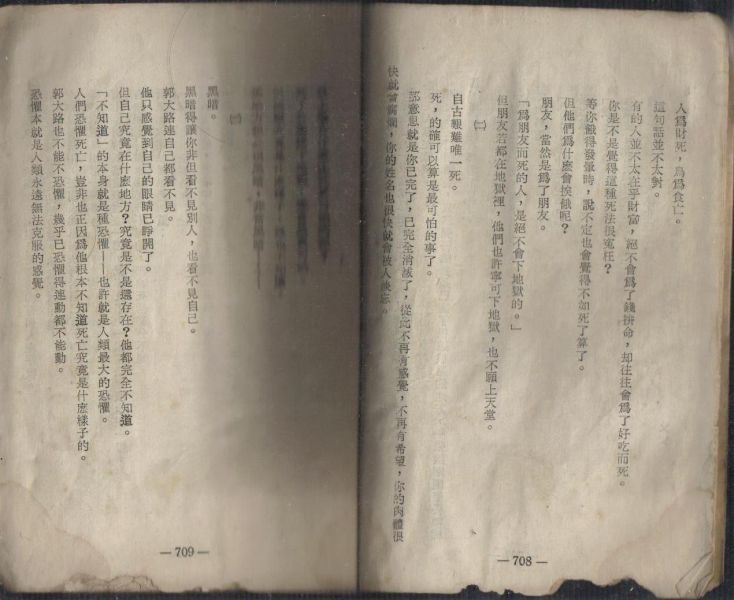 人爲財死，鳥爲食亡。
這句話並不太對。
有的人並不太在乎財富，絕不會爲了錢拼命，却往往會爲了好吃而死。
你是不是覺得這種死法很寃枉？
等你餓得發暈時，說不定也會覺得不如死了算了。
但他們爲什麽會挨餓呢？
朋友，當然是爲了朋友。
「爲朋友而死的人，是絕不會下地獄的。」
但朋友若都在地獄裡，他們也許寧可下地獄，也不願上天堂。
㈡
自古艱難唯一死。
死，的確可以算是最可怕的事了。
那意思就是你已完了，已完全消滅了，從此不再有感覺，不再有希望，你的肉體很
快就會腐爛，你的姓名也很快就會被人淡忘。
—708—
黑暗。
黑暗得讓你非但看不見別人，也看不見自己。
郭大路連自己都看不見。
他只感覺到自己的眼睛已睜開了。
但自己究竟在什麽地方？究竟是不是還存在？他都完全不知道。
「不知道」的本身就是種恐懼——也許就是人類最大的恐懼。
人們恐懼死亡，豈非也正因爲他根本不知道死亡究竟是什麽樣子的。
郭大路也不能不恐懼，幾乎已恐懼得連動都不能動。
恐懼本就是人類永遠無法克服的感覺。
—709—